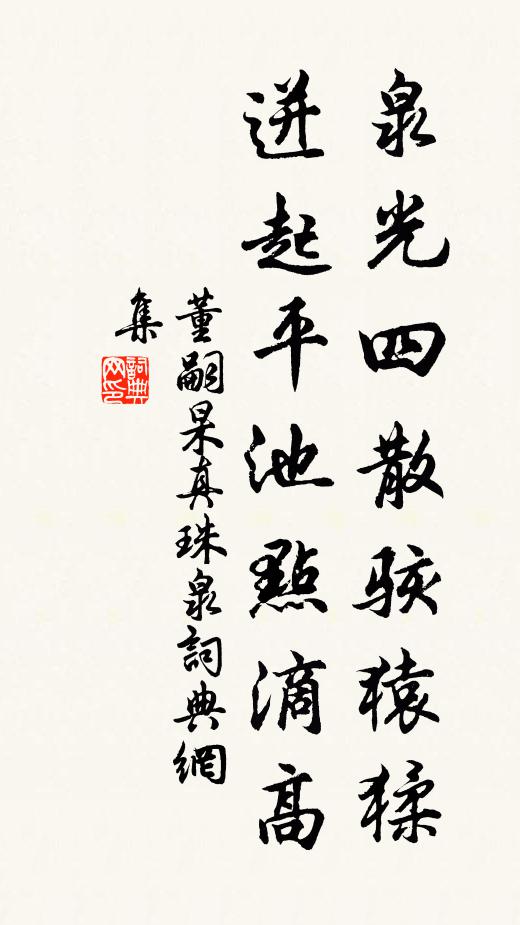 泉光四散駭猿猱
迸起平池點滴高
董嗣杲真珠泉詞典網
集
詞典網印